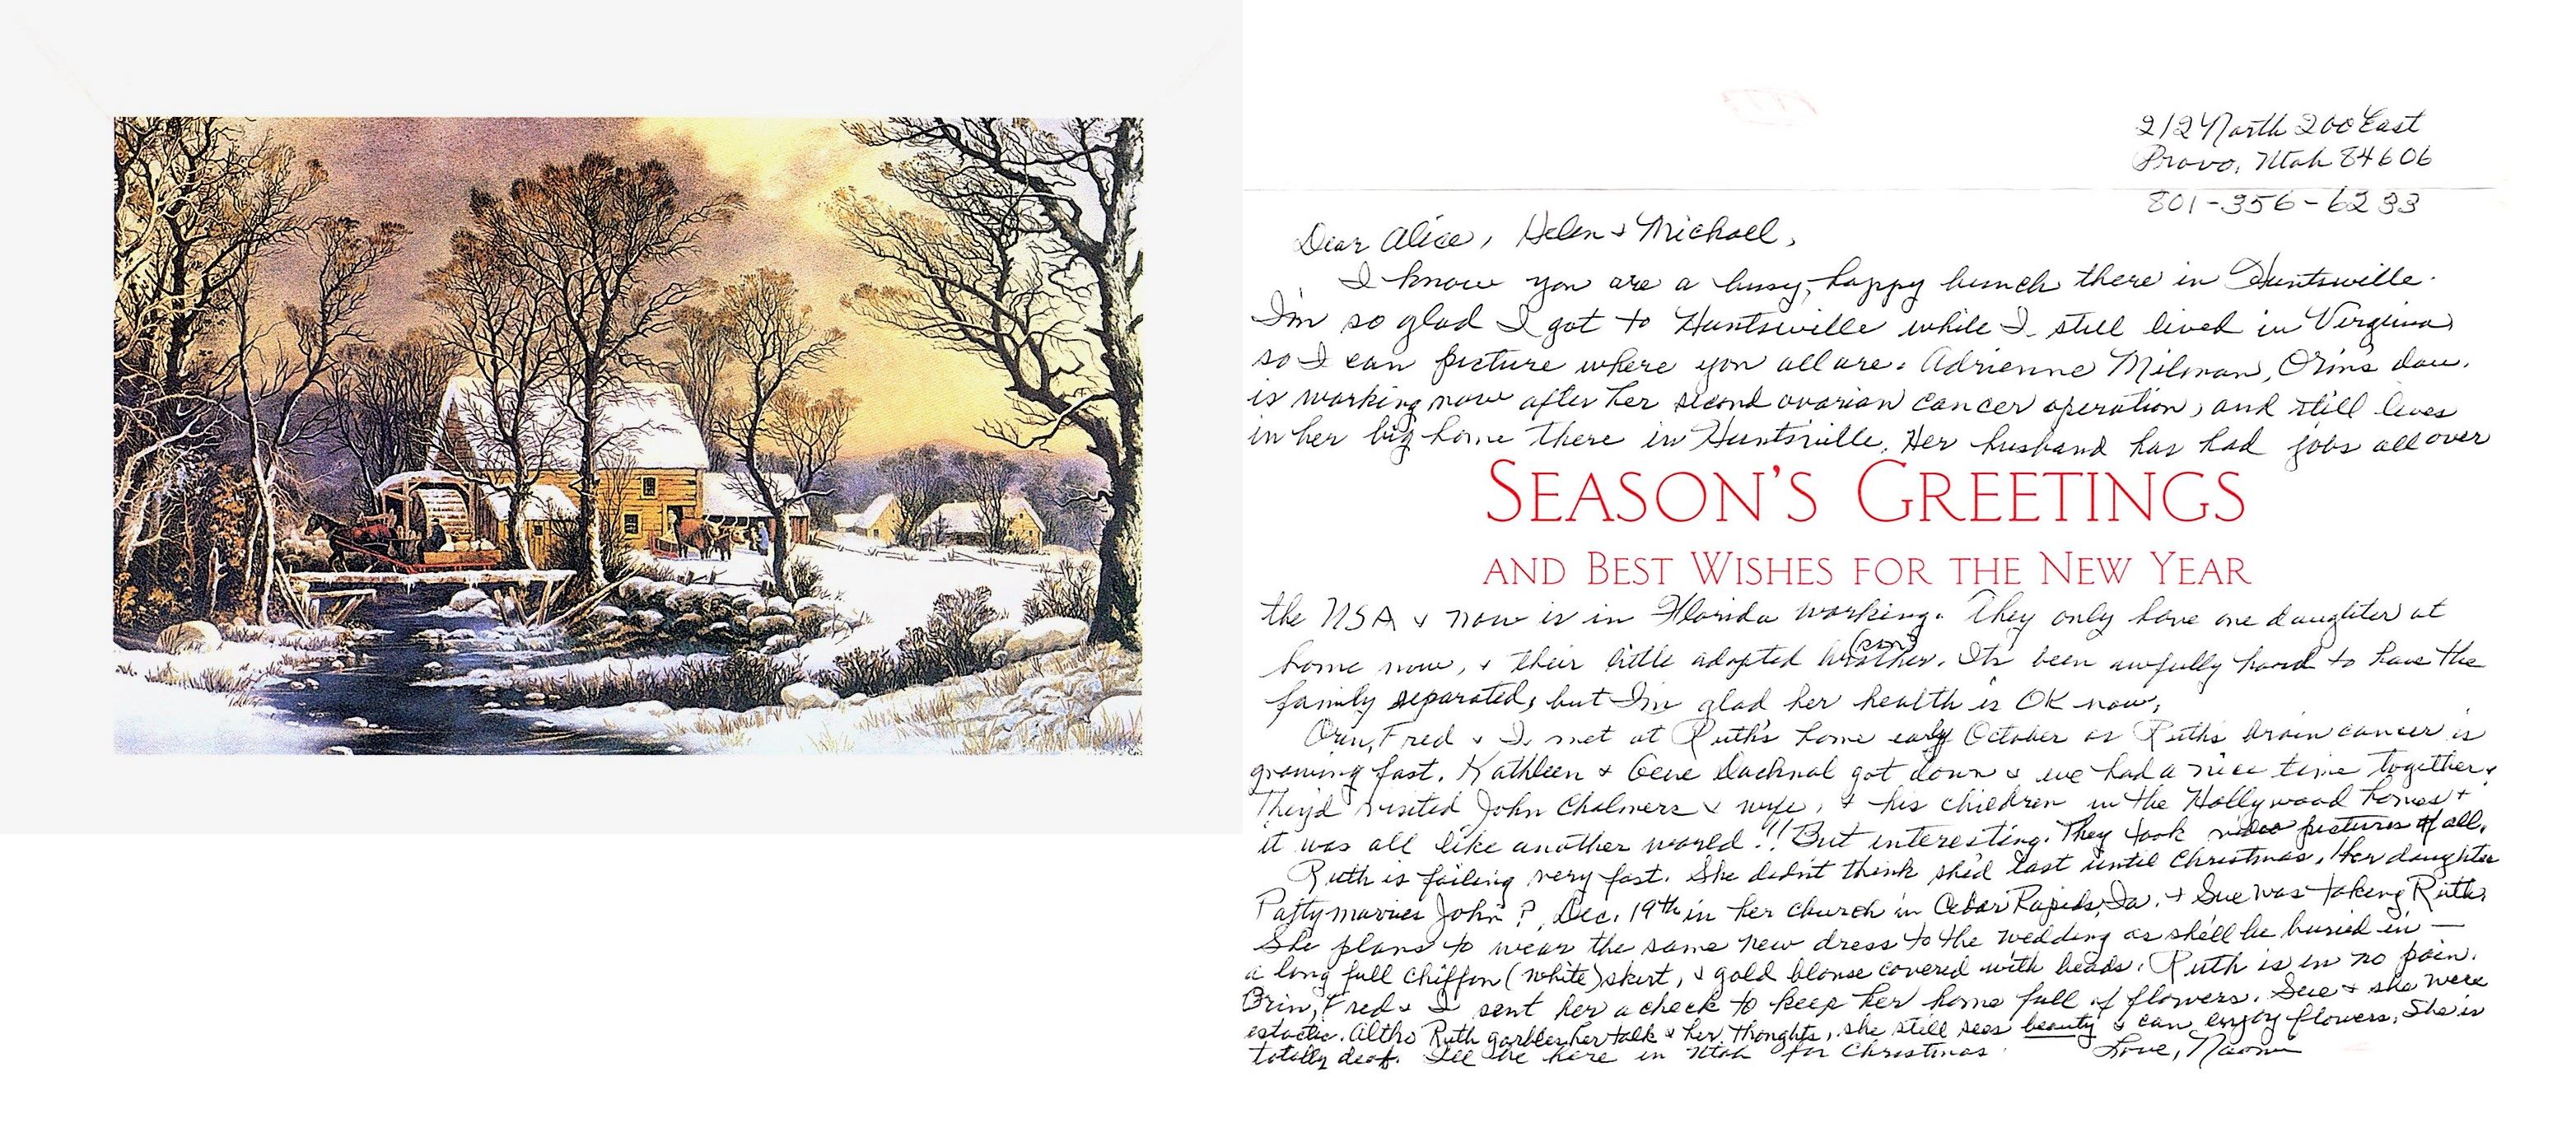 212 North 200 East
Provo, Utah 84606
801-356-6233
Dear Alice, Helen & Michael,
I know you are a busy, happy bunch there in Huntsville.
I'm so glad I got to Huntsville while I still lived in Virginia
so I can picture where you all are. Adrienne Milman, Orin's dau.
is working now after her second ovarian cancer operation, and still lives
in her big home there in Huntsville. Her husband has had jobs all over
SEASON'S GREETINGS
AND BEST WISHES FOR THE NEW YEAR
the USA & now is in Florida working. They only have one daughter at
home now, & their little adopted brother. (son) It's been awfully hard to have the
family separated, but I'm glad her health is OK now.
Orin, Fred & I met at Ruth's home early October as Ruth's brain cancer is
growing fast. Kathleen & Gene got down & we had a nice time together.
They'd visited John Chalmers & wife, & his children in the Hollywood homes &
it was all like another world!! But interesting. They took video pictures of all.
Ruth is failing very fast. She didn't think she'd last until Christmas. Her daughter
Patty marries John ?, Dec. 19th in her church in Cedar Rapids, Ia. & Sue was taking Ruth.
She plans to wear the same new dress to the wedding as she'll be buried in —
a long full chiffon (white) skirt, & gold blouse covered with beads. Ruth is in no pain.
Orin, Fred & I sent her a check to keep her home full of flowers. Sue & she were
estactic. Altho Ruth garbles her talk & her thoughts, she still sees beauty & can enjoy flowers. She is
totally deaf. I'll be here in Utah for Christmas. Love, Naomi